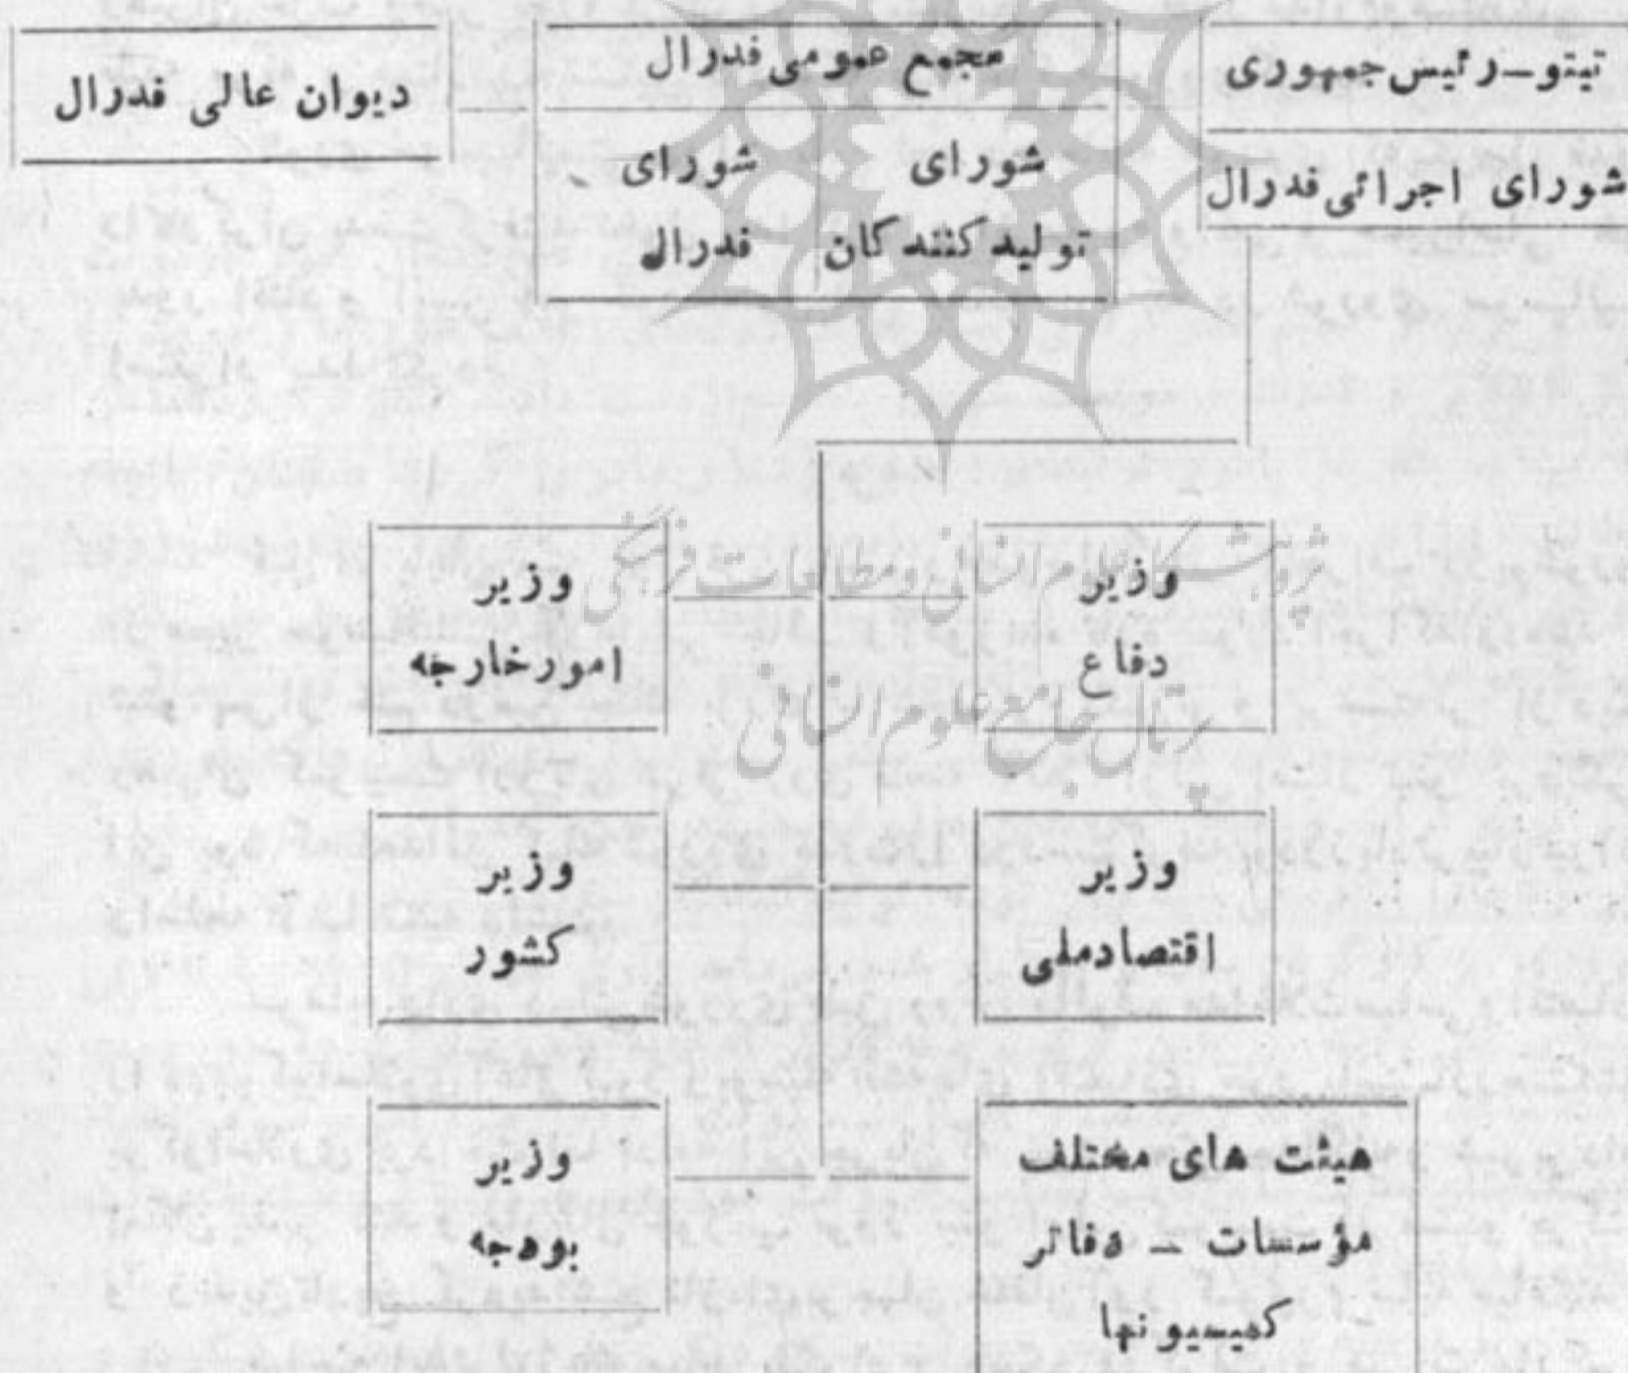 تیتو ـ رئیس جمهوری
شورای اجرائی فدرال
مجمع عمومی فدرال
شورای
تولید کنندگان
شورای
فدرال
دیوان عالی فدرال
پژوهشگاه علوم انسانی و مطالعات فرهنگی
پرتال جامع علوم انسانی
وزیر
دفاع
وزیر
امور خارجه
وزیر
اقتصاد ملی
وزیر
کشور
هیئت های مختلف
مؤسسات ـ دفاتر
کمیسیونها
وزیر
بودجه